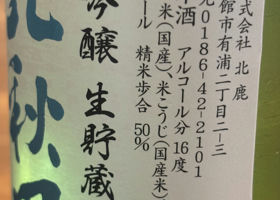 式会社 北鹿
館市有浦二丁目二-三
0186-42-2101
酒 アルコール分 16度
米(国産)、米こうじ(国産米)、
ール 精米歩合 50%
吟醸 生貯蔵
北秋田